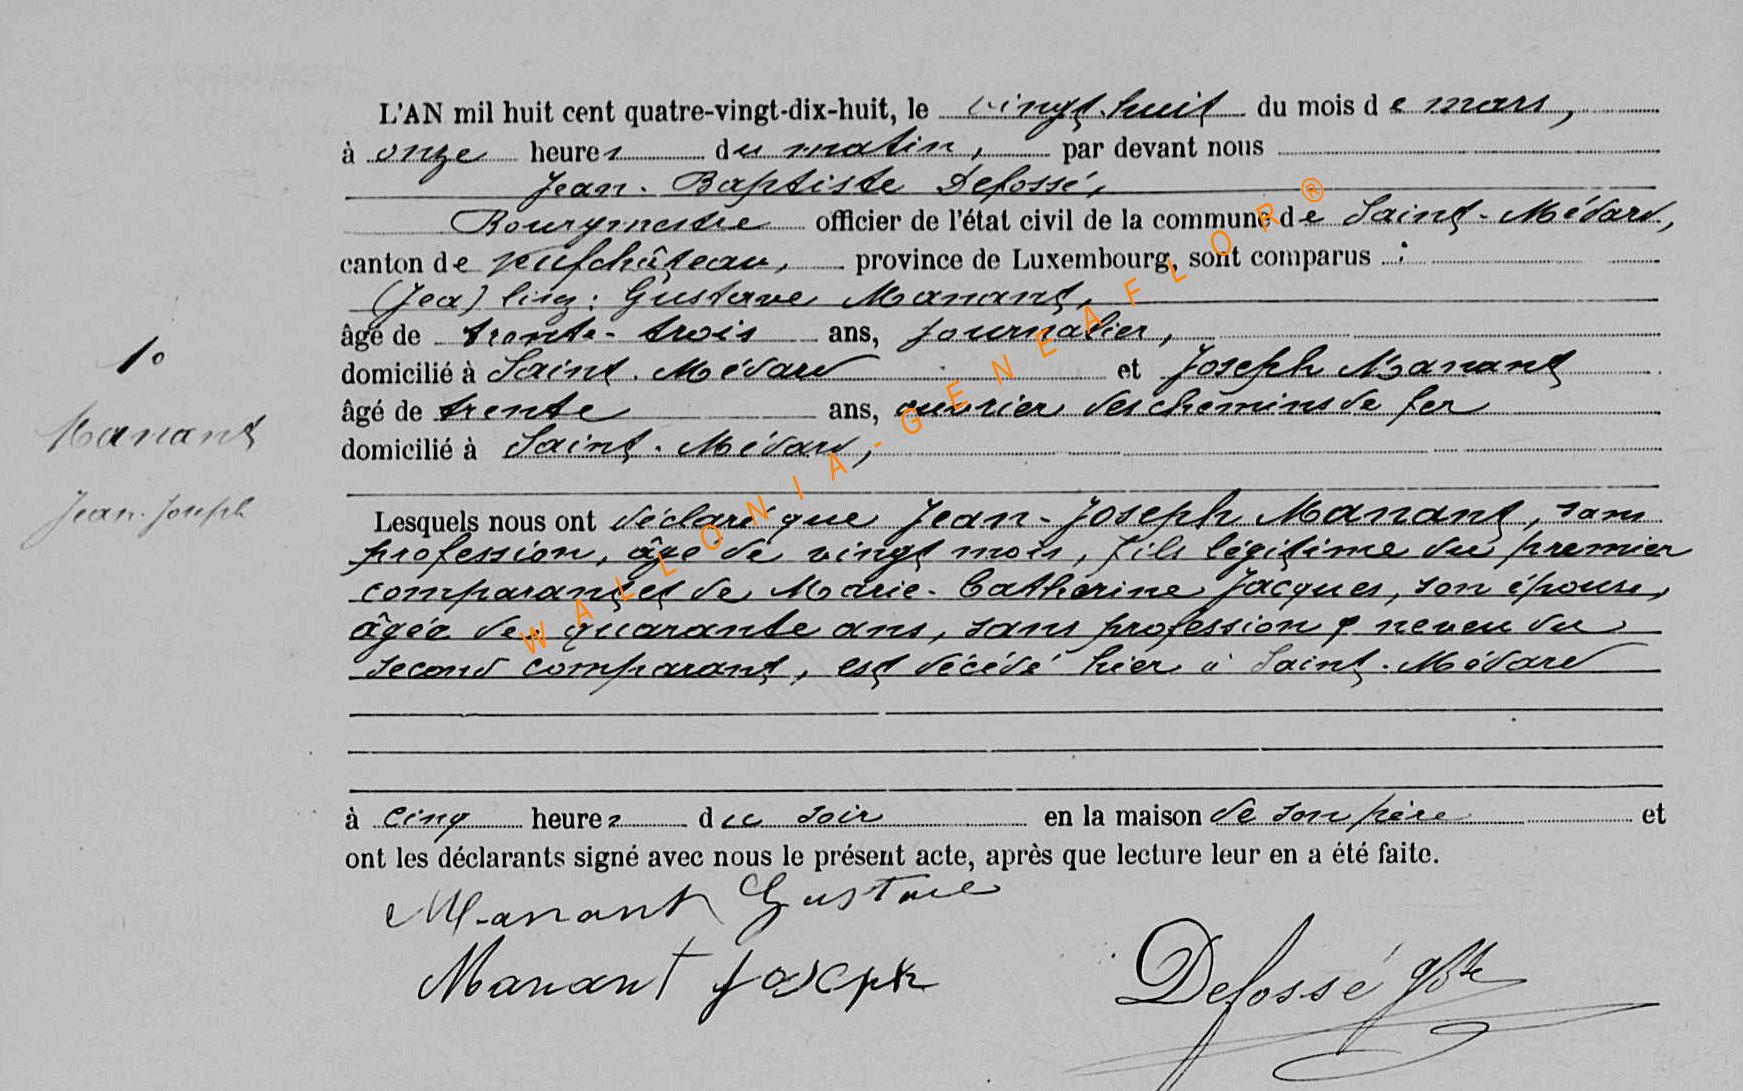 L'AN mil huit cent quatre-vingt-dix-huit, le vingt-huit du mois de mars,
à onze heures du matin, par devant nous
Jean-Baptiste Defossé,
Bourgmestre officier de l'état civil de la commune de Saint-Médard,
canton de neufchâteau, province de Luxembourg, sont comparus :
Gustave Manant,
âgé de trente-trois ans, journalier,
domicilié à Saint-Médard et Joseph Manant
âgé de trente ans, ouvrier des chemins de fer
domicilié à Saint-Médard,
1°
Manant
Jean-Joseph
Lesquels nous ont déclaré que Jean-Joseph Manant, sans
profession, âgé de vingt mois, fils légitime du premier
comparant et de Marie-Catherine Jacques, son épouse,
âgée de quarante ans, sans profession & neveu du
second comparant, est décédé hier à Saint-Médard
à cinq heures du soir en la maison de son père et
ont les déclarants signé avec nous le présent acte, après que lecture leur en a été faite.
Manant Gustave
Manant Joseph
Defossé Jbte
WALLONIA-GENEAFLOR®